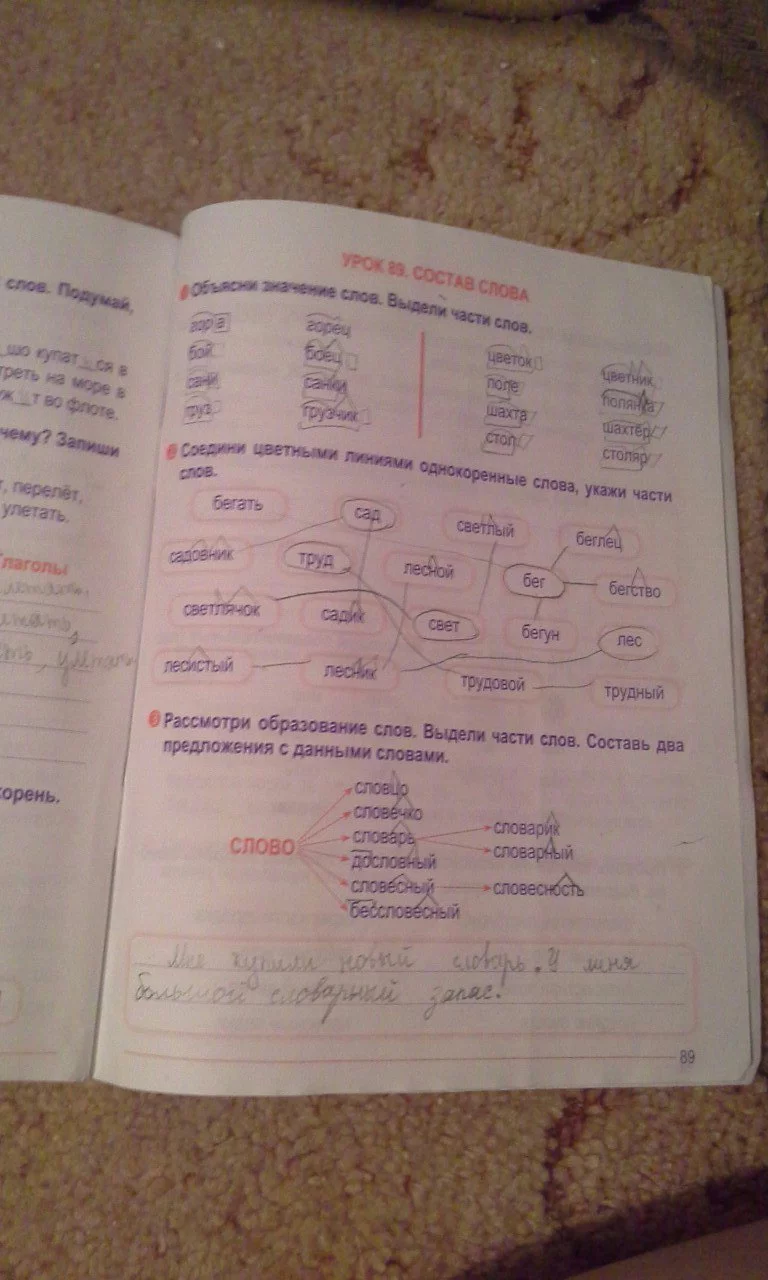 слов. Подумай,
шо купат_ся в
треть на море в
уж_т во флоте.
чему? Запиши
т, перелёт,
улетать.
Глаголы
корень.
УРОК 89. СОСТАВ СЛОВА
1 Объясни значение слов. Выдели части слов.
гора горец цветок цветник
бой боец поле полянка
сани санки шахта шахтёр
груз грузчик стол столяр
2 Соедини цветными линиями однокоренные слова, укажи части
слов.
бегать сад светлый беглец
садовник труд лесной бег бегство
светлячок садик свет бегун лес
лесистый лесник трудовой трудный
3 Рассмотри образование слов. Выдели части слов. Составь два
предложения с данными словами.
словцо
словечко
словарь словарик
СЛОВО дословный словарный
словесный словесность
бессловесный
Мне купили новый словарь. У меня
большой словарный запас.
89